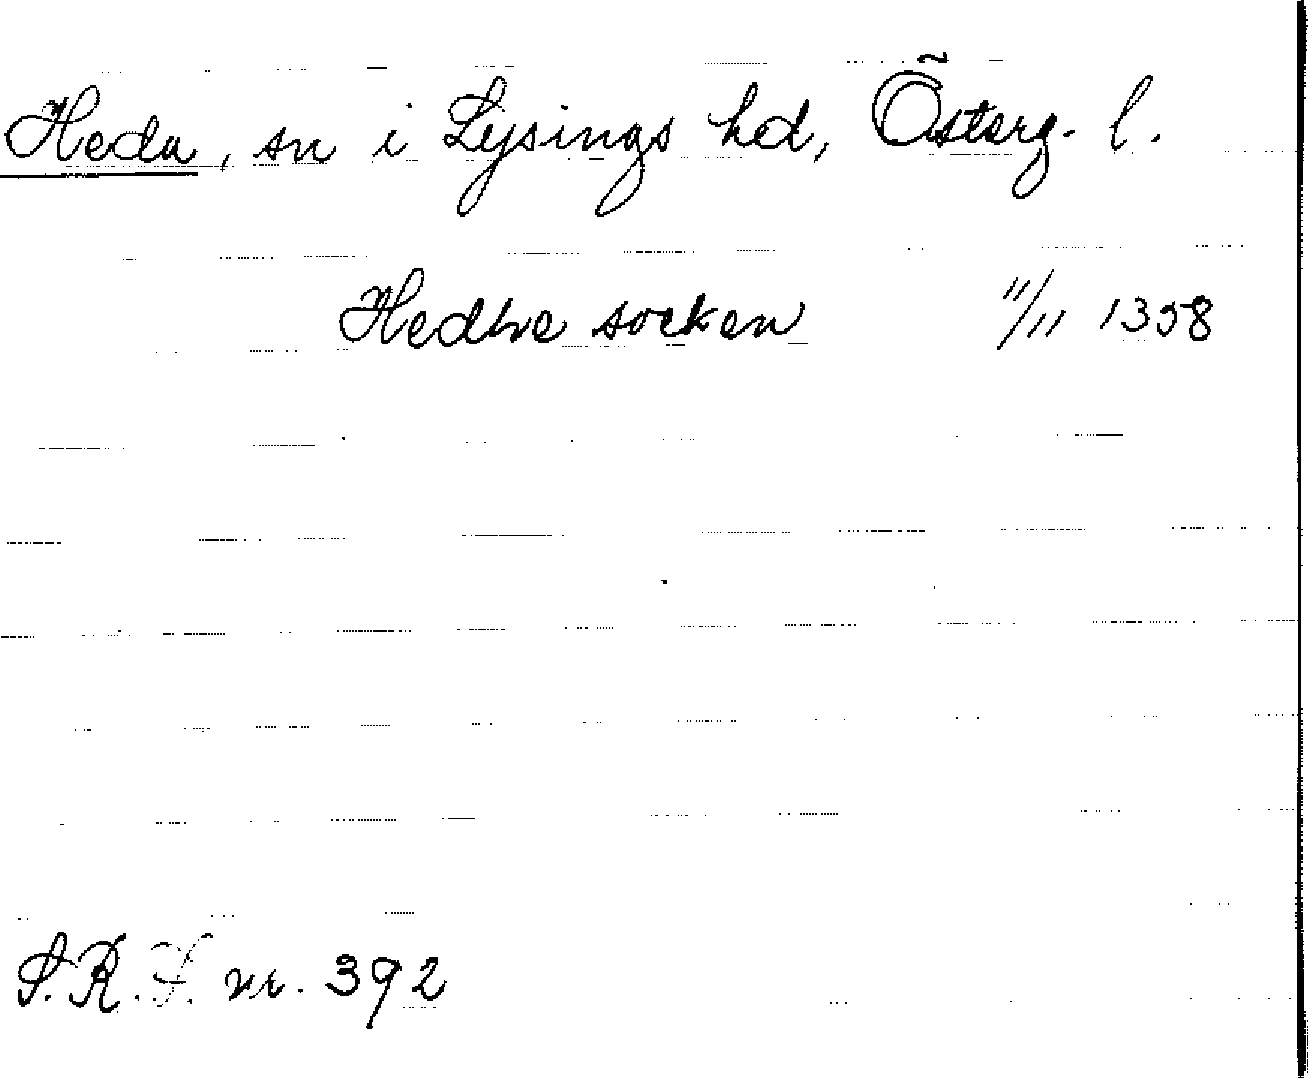 Heda, sn i Lysings hd, Österg. l.
Hedhe socken 11/11 1358
S.R.S. nr. 392